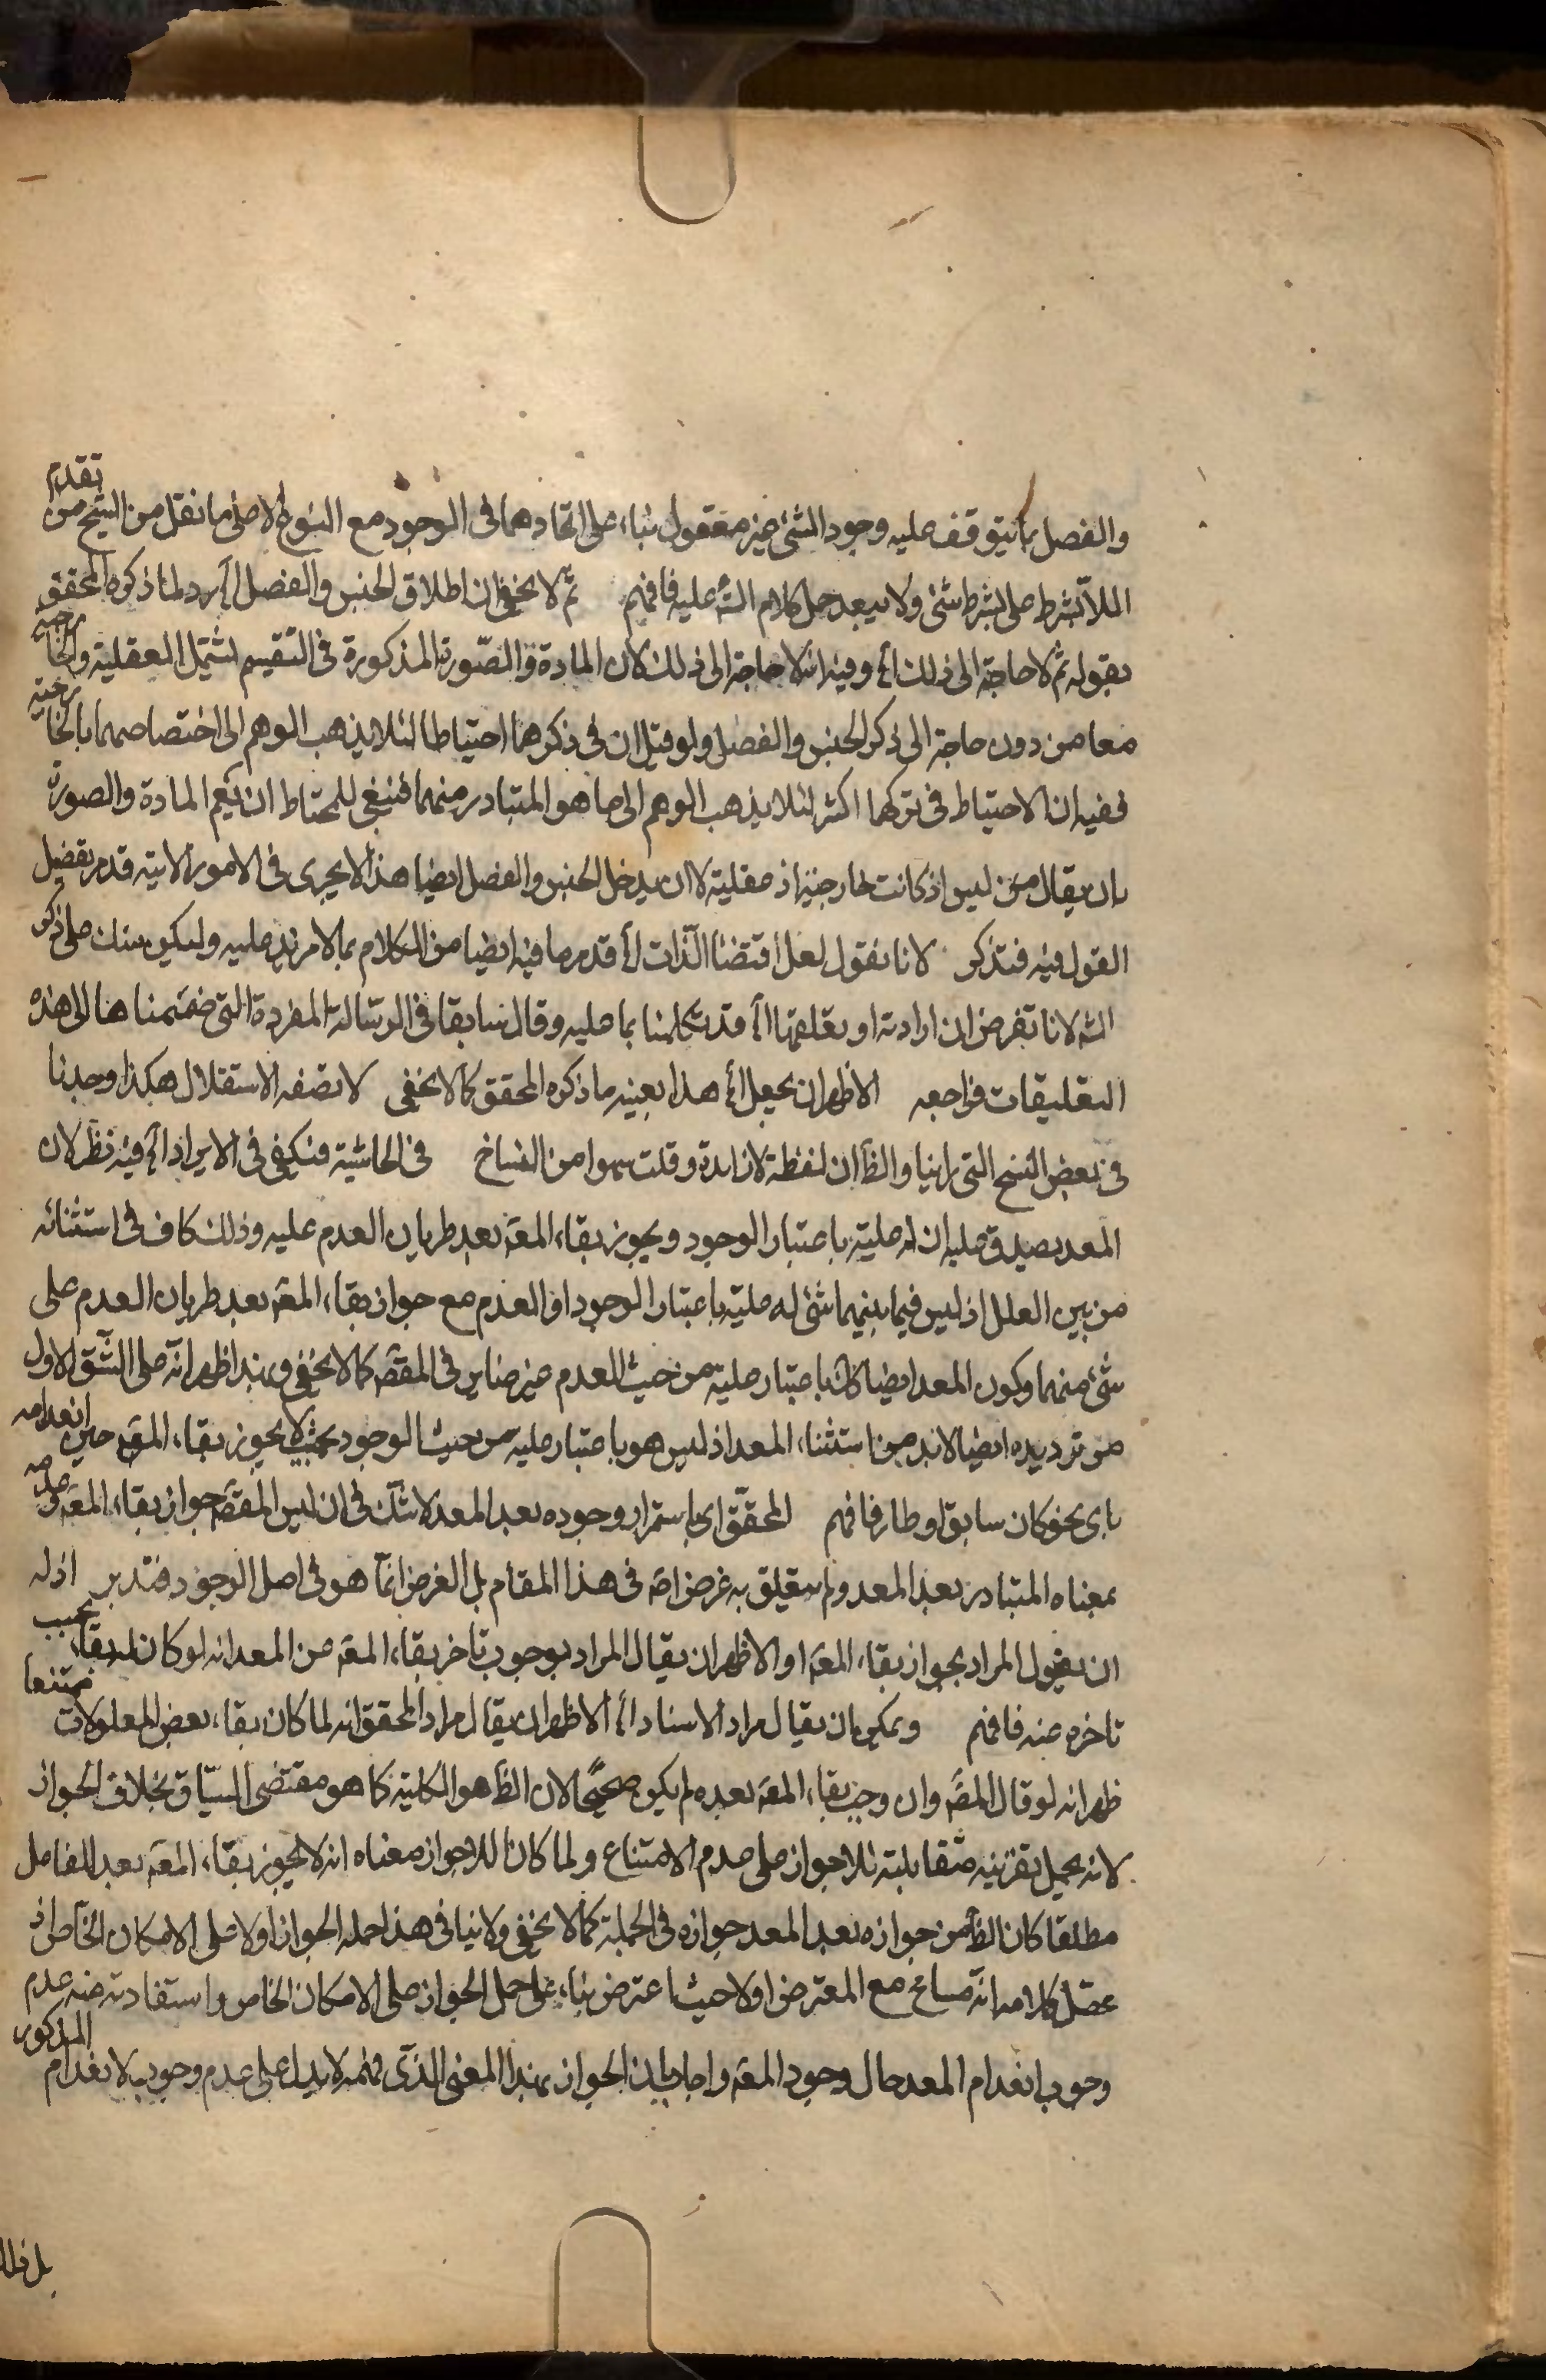 والفصل بما يتوقف عليه وجود الشئ غير معقول بناء على اتحادهما في الوجود مع النوع الا على ما نقل من الشيخ من تقدم
الملا بشرط على بشرط شئ ولا يبعد حمل كلام الشه عليه فافهم ثم لا يخفى ان اطلاق الجنس والفصل اه رد لما ذكره المحقق
بقوله ثم لا حاجة الى ذلك اه وفيه انه لا حاجة الى ذلك لان المادة والصورة المذكورة في التقسيم لشتمل العقلية والخارجية
معا من دون حاجة الى ذكر الجنس والفصل ولو قيل ان في ذكرهما احتياطا لئلا يذهب الوهم الى اختصاصهما بالخارجية
ففيه ان الاحتياط في تركهما اكثر لئلا يذهب الوهم الى ما هو المتبادر منهما فينبغي للمحتاط ان يعم المادة والصورة
بان يقال من ليس اذ كانت خارجية اذ عقلية لا ان يدخل الجنس والفصل ايضا هذا لا يجرى في الامور الاتيه قد مر تفصيل
القول فيه فتذكر لانا نقول لعل اقتضا الذات اه قد مر ما فيه ايضا من الكلام بما لا مزيد عليه وليكن منك على ذكر
الشه لانا نفرض ان ارادته او تعلقها اه قد تكلمنا بما عليه وقال سابقا في الرسالة المفردة التي ضممناها الى هذه
التعليقات فراجعه الاظهر ان يجعل اه هذا بعينه ما ذكره المحقق كما لا يخفى لا تصفه الاستقلال هكذا وجدنا
في بعض النسخ التي راينا والظ ان لفظة لا زايدة وقلت سهوا من النساخ في الحاشية فنكفى في الايراد اه فيه نظر لان
المعد يصدق عليه ان له علية باعتبار الوجود ويجوز بقاء المعه بعد طريان العدم عليه وذلك كاف في استثنائه
من بين العلل اذ ليس فيما بينهما شئ له علية باعتبار الوجود او العدم مع جواز بقاء المعه بعد طريان العدم على
شئ منهما وكون المعد ايضا كك باعتبار علية من حيث العدم غير ضاير في المقصه كما لا يخفى وبهذا ظهر انه على الشق الاول
من ترديده ايضا لا بد من استثناء المعد اذ ليس هو باعتبار علية من حيث الوجود بحيث لا يجوز بقاء المعه حين انعدامه
باى نحو كان سابق او طار فافهم المحقق اى باستمرار وجوده بعد المعد لا شك في ان ليس المقصه جواز بقاء المعه
بمعناه المتبادر بعد المعد ولم يتعلق به غرض اصه في هذا المقام بل الغرض انما هو في اصل الوجود فتدبر اذ له
ان يقول المراد بجواز بقاء المعه اه والاظهر ان يقال المراد بوجوب تاخر بقاء المعه من المعد انه لو كان له بقاء يجب
تاخره عنه فافهم ويمكن بان يقال مراد الاستاد اه الاظهر ان يقال مراد المحقق انه لما كان بقاء بعض المعلولات ممتنعا
ظهر انه لو قال المصه وان وجب بقاء المعه بعده لم يكن صحيحا لان الظ هو الكلية كما هو مقتضى السياق بخلاف الجواز
لانه يحمل بقرينه مقابلته للاجواز على عدم الامتناع ولما كان للاجواز معناه انه لا يجوز بقاء المعه بعد الفاعل
مطلقا كان الظ من جوازه بعد المعد جوازه في الجملة كما لا يخفى ولا ينافى هذا حمله الجواز اولا على الامكان الخاص اذ
كلامه انه مسامح مع المعترض اولا حيث اعترض بناء على حمل الجواز على الامكان الخاص واستفادته منه عدم
وجوب انعدام المعد حال وجود المعه واجاب بان الجواز بهذا المعنى الذى فهمه لا يدل على عدم وجوب الانعدام المذكور